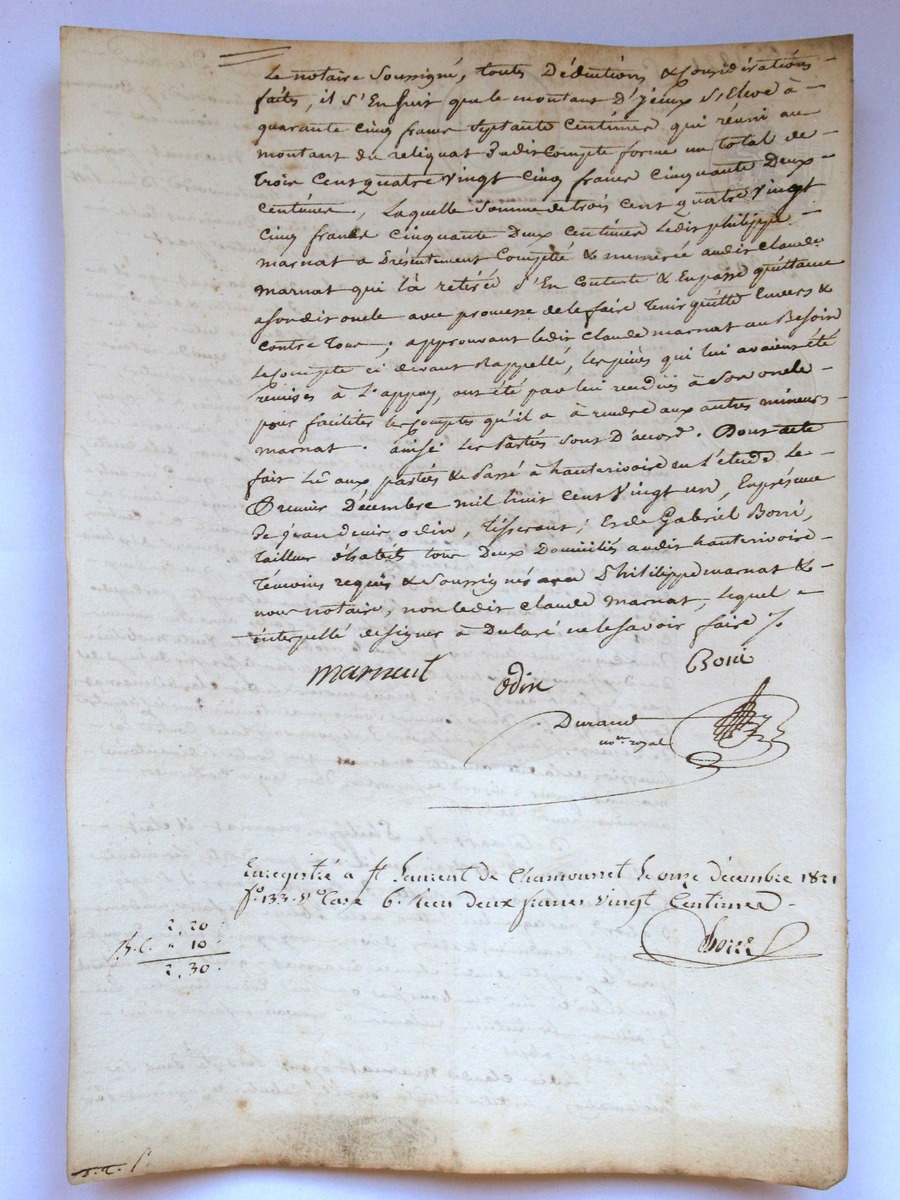 Le notaire Soussigné, toutes Déductions & Considérations
faites, il S'Ensuit que le montant D'Yceux S'Eleve à
quarante cinq francs Septante Centimes qui réuni au
montant du reliquat Judit Compte forme un total de
Trois Cent quatre vingt cinq francs Cinquante Deux
Centimes, Laquelle Somme de trois Cent quatre Vingt
Cinq francs Cinquante Deux Centimes Ledit philippe
marnat a Présentement Comptée & numérée audit Claude
marnat qui l'a retirée S'En Contente & En passe quittance
a Son dit oncle avec promesse de le faire Tenir quitte Envers &
Contre Tous; approuvant ledit Claude marnat au Besoin
Le Compte ci devant Rappellé, Les pièces qui lui avaient été
remises à L'appuy, ont été par lui rendues à Son oncle
pour faciliter les Comptes qu'il a à rendre aux autres mineurs
marnat. ainsi Les Parties Sont D'acord. Dont acte
fait Lu aux parties & Passé à hauterivoire en L'étude Le
Premier Décembre mil huit Cent Vingt un, En présence
De Jean Denis odin, Tisserant; Et de Gabriel Borri,
Tailleur d'habits tous Deux Domiciliés audit hauterivoire
Témoins requis & Soussignés avec Philippe marnat &
nous notaire, non ledit Claude Marnat, lequel
interpellé de signer à Declaré ne le Savoir faire /.
marnat
Odin
Borri
Durand
not. royal
Enregistré a St Laurent de Chamousset le onze décembre 1821
f° 133 v° Case 6. Reçu deux francs vingt Centimes
2,20
10
2,30